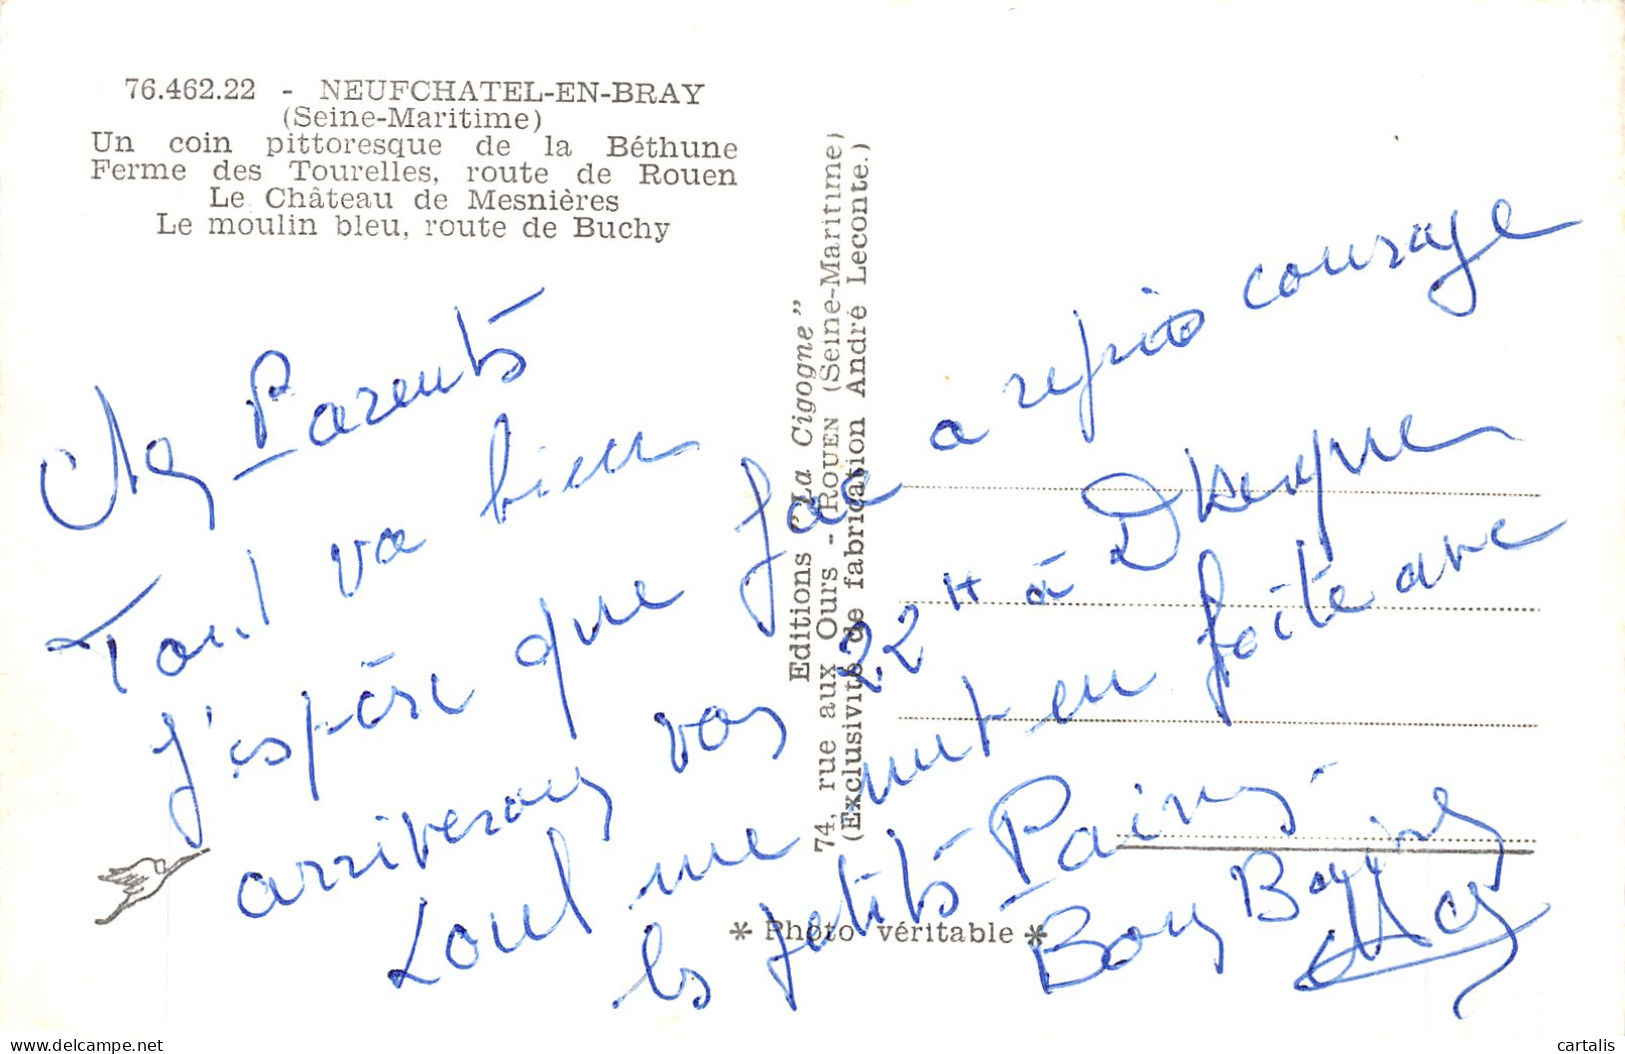 76.462.22 - NEUFCHATEL-EN-BRAY
(Seine-Maritime)
Un coin pittoresque de la Béthune
Ferme des Tourelles, route de Rouen
Le Château de Mesnières
Le moulin bleu, route de Buchy
Editions "La Cigogne"
74, rue aux Ours - ROUEN (Seine-Maritime)
(Exclusivité de fabrication André Leconte.)
Parents
Tout va bien
J'espère que a repris courage
arriverons vos 22H à Dkerque
tout en
les petits Pains
Bons
* Photo véritable *
delcampe.net
cartalis